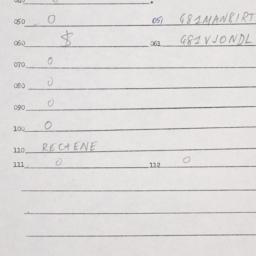 050 0 051 G81MANRIRT
060 $ 061 G81VJONDL
070 0
080 0
090 0
100 0
110 RECHENE
111 0 112 0